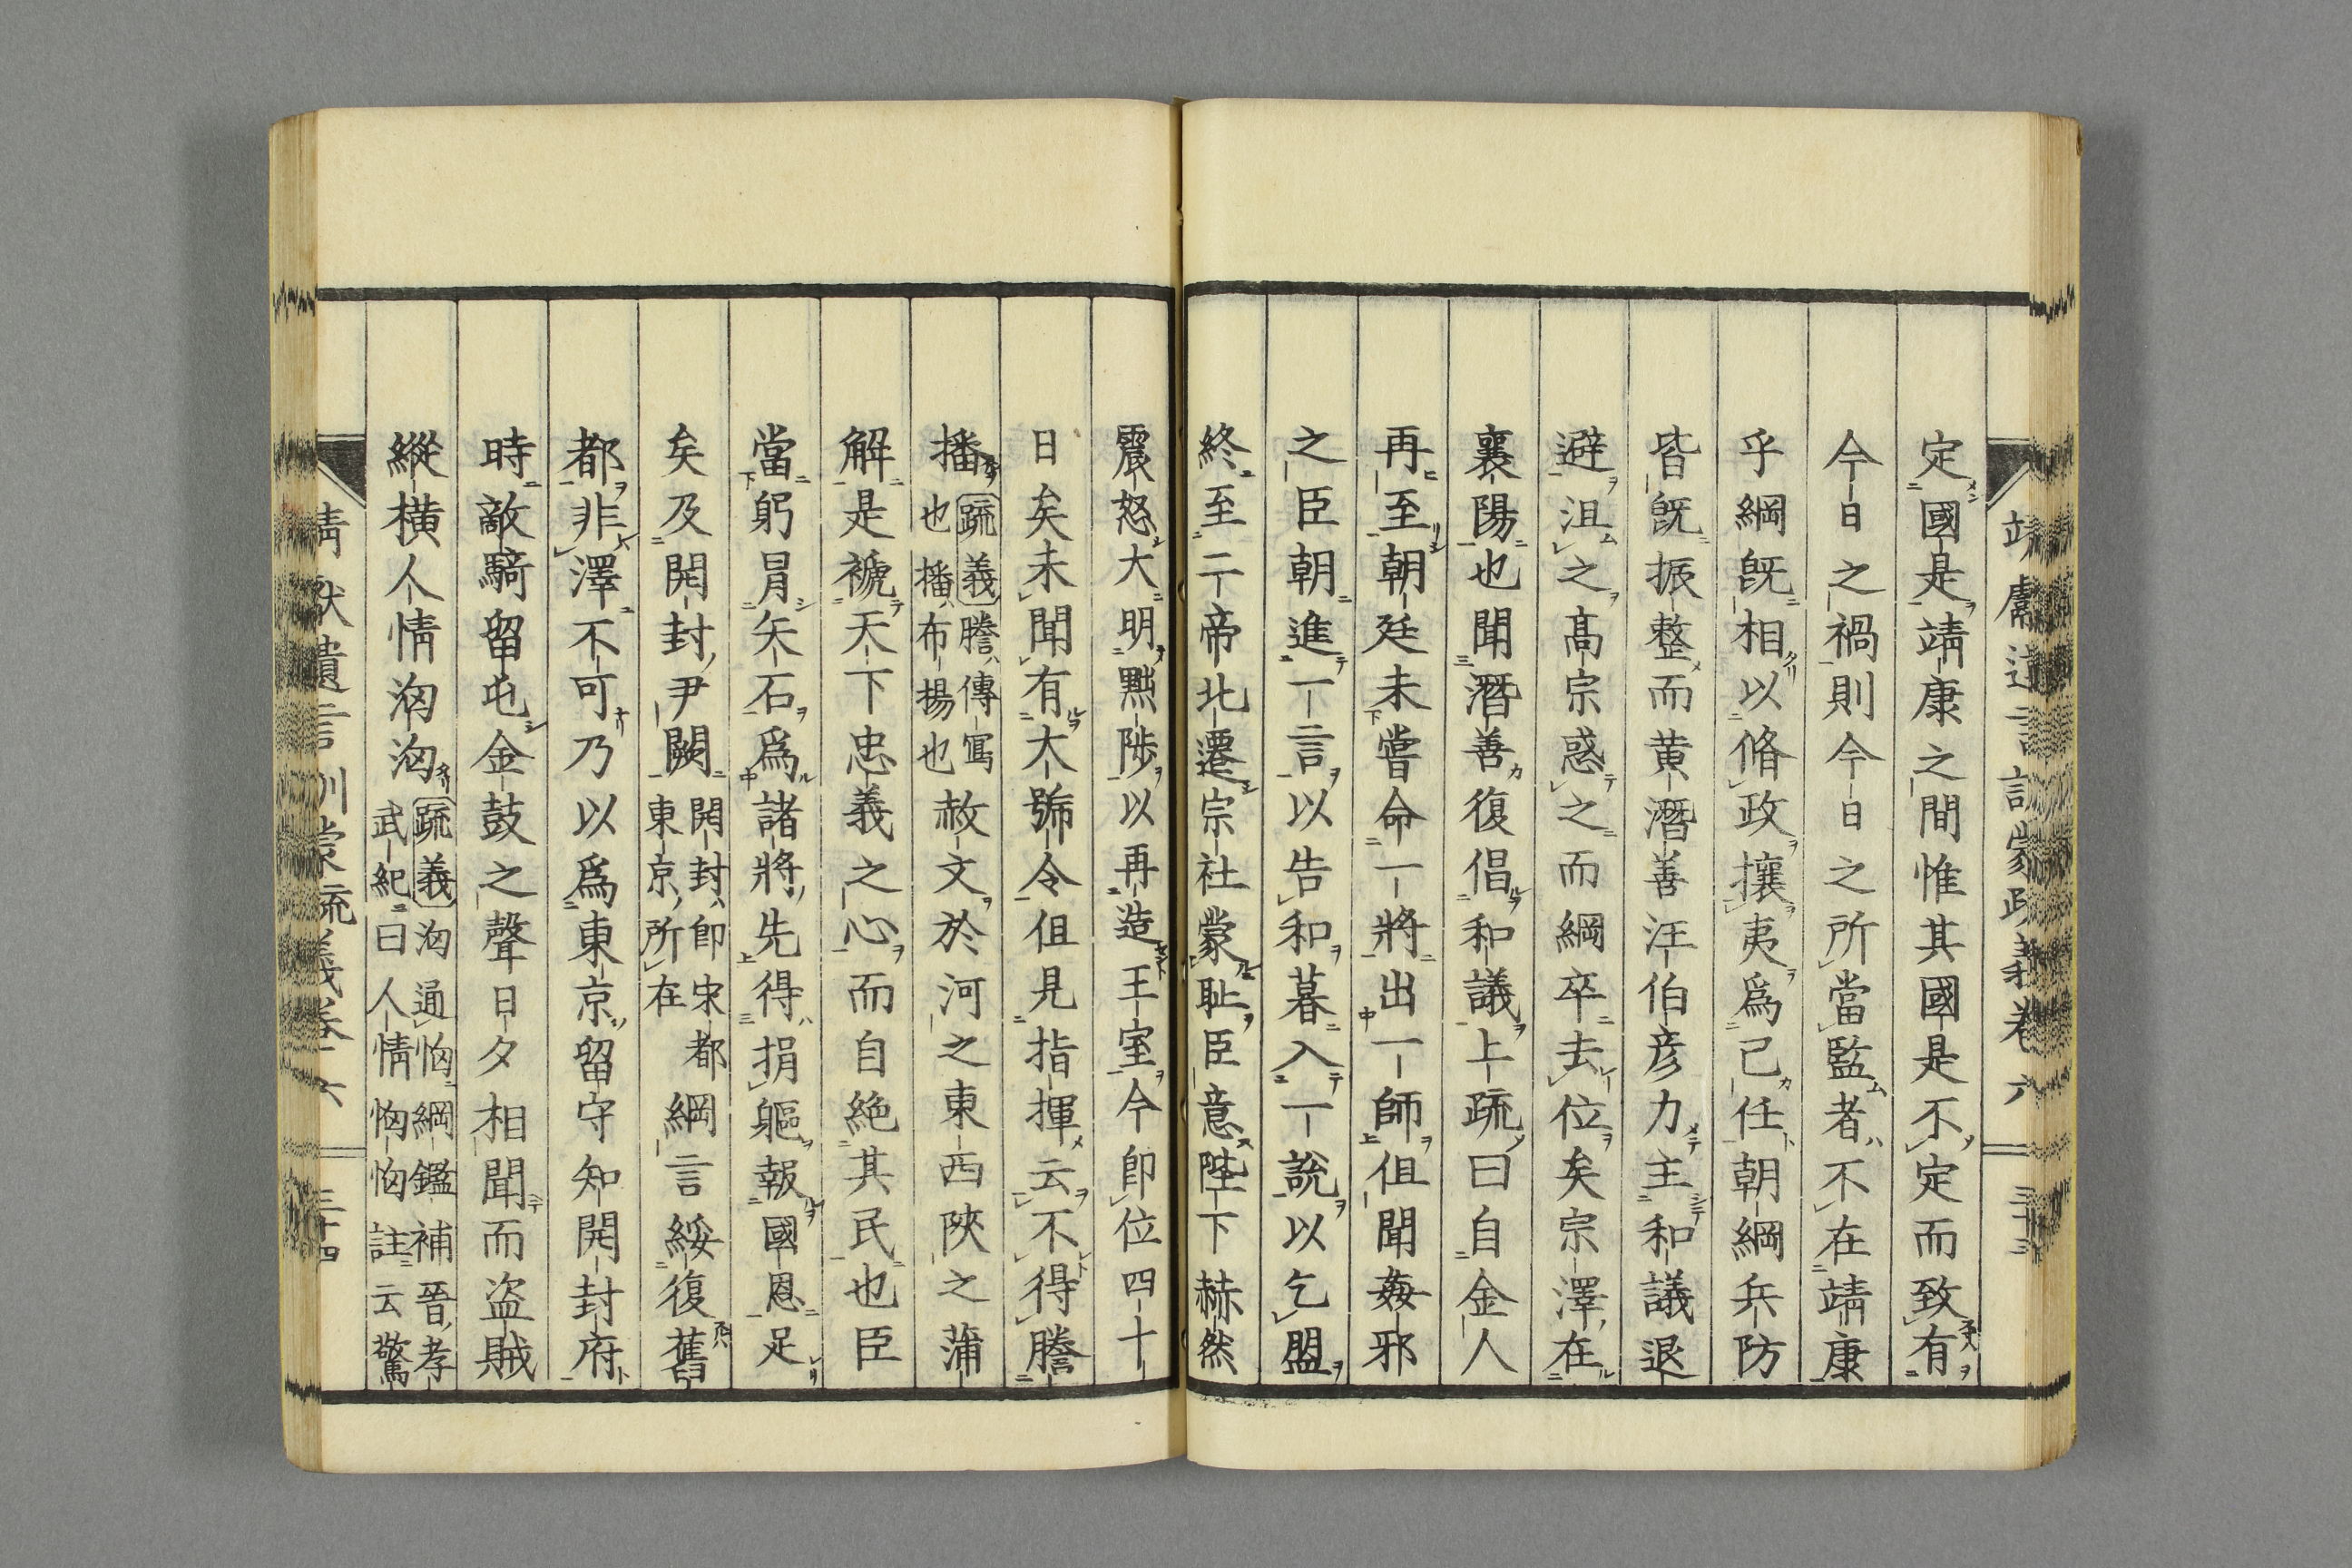 定國是靖康之間惟其國是不定而致有
今日之禍則今日之所當監者不在靖康
乎綱旣相以脩政攘夷爲己任朝綱兵防
皆旣振整而黄潛善汪伯彦力主和議退
避沮之高宗惑之而綱卒去位矣宗澤在
襄陽也聞潛善復倡和議上疏曰自金人
再至朝廷未嘗命一將出一師但聞姦邪
之臣朝進一言以告和暮入一說以乞盟
終至二帝北遷宗社蒙耻臣意陛下赫然
震怒大明黜陟以再造王室今卽位四十
日矣未聞有大號令但見指揮云不得謄
播疏義謄傳寫也播布揚也赦文於河之東西陜之蒲
解是褫天下忠義之心而自絶其民也臣
當躬冒矢石爲諸將先得捐軀報國恩足
矣及開封尹闕開封卽宋都東京所在綱言綏復舊
都非澤不可乃以爲東京留守知開封府
時敵騎留屯金鼓之聲日夕相聞而盗賊
縱橫人情洶洶疏義洶通恟綱鑑補晉孝武紀曰人情恟恟註云驚
靖獻遺言訓蒙疏義卷六 三十四